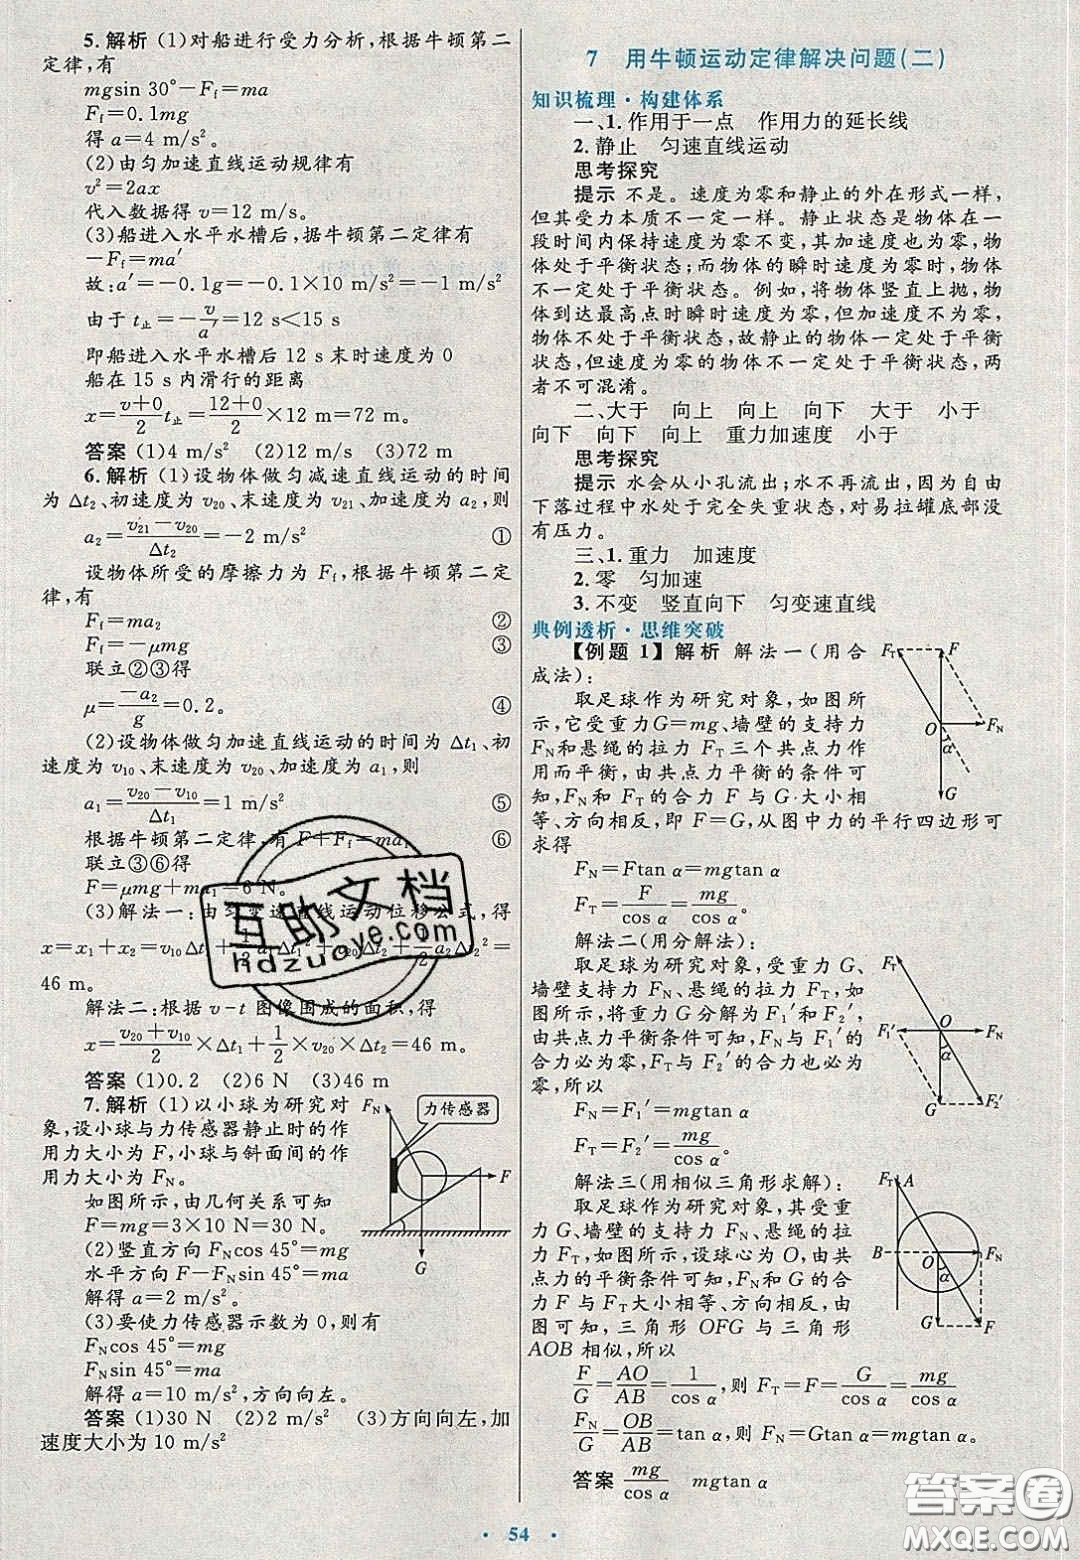 5.解析 (1)对船进行受力分析,根据牛顿第二
定律,有
mgsin 30°－Ff＝ma
Ff＝0.1mg
得 a＝4 m/s²。
(2)由匀加速直线运动规律有
v²＝2ax
代入数据得 v＝12 m/s。
(3)船进入水平水槽后,据牛顿第二定律有
－Ff＝ma′
故:a′＝－0.1g＝－0.1×10 m/s²＝－1 m/s²
由于 t止＝－v/a′＝12 s＜15 s
即船进入水平水槽后 12 s 末时速度为 0
船在 15 s 内滑行的距离
x＝(v+0)/2 t止＝(12+0)/2×12 m＝72 m。
答案 (1)4 m/s² (2)12 m/s (3)72 m
6.解析 (1)设物体做匀减速直线运动的时间
为 Δt₂、初速度为 v₂₀、末速度为 v₂₁、加速度为 a₂,则
a₂＝(v₂₁－v₂₀)/Δt₂＝－2 m/s² ①
设物体所受的摩擦力为 Ff,根据牛顿第二定
律,有
Ff＝ma₂ ②
Ff＝－μmg ③
联立②③得
μ＝－a₂/g＝0.2。 ④
(2)设物体做匀加速直线运动的时间为 Δt₁、初
速度为 v₁₀、末速度为 v₂₀、加速度为 a₁,则
a₁＝(v₂₀－v₁₀)/Δt₁＝1 m/s² ⑤
根据牛顿第二定律,有 F＋Ff＝ma₁ ⑥
联立③⑥得
F＝μmg＋ma₁＝6 N。
(3)解法一:由匀变速直线运动位移公式,得
x＝x₁＋x₂＝v₁₀Δt₁＋1/2a₁Δt₁²＋v₂₀Δt₂＋1/2a₂Δt₂²＝
46 m。
解法二:根据 v－t 图像围成的面积,得
x＝(v₂₀＋v₁₀)/2×Δt₁＋1/2×v₂₀×Δt₂＝46 m。
答案 (1)0.2 (2)6 N (3)46 m
7.解析 (1)以小球为研究对
象,设小球与力传感器静止时的作
用力大小为 F,小球与斜面间的作
用力大小为 FN。
如图所示,由几何关系可知
F＝mg＝3×10 N＝30 N。
(2)竖直方向 FNcos 45°＝mg
水平方向 F－FNsin 45°＝ma
解得 a＝2 m/s²。
(3)要使力传感器示数为 0,则有
FNcos 45°＝mg
FNsin 45°＝ma
解得 a＝10 m/s²,方向向左。
答案 (1)30 N (2)2 m/s² (3)方向向左,加
速度大小为 10 m/s²
FN
力传感器
F
G
7 用牛顿运动定律解决问题(二)
知识梳理·构建体系
一、1.作用于一点 作用力的延长线
2.静止 匀速直线运动
思考探究
提示 不是。速度为零和静止的外在形式一样,
但其受力本质不一定一样。静止状态是物体在一
段时间内保持速度为零不变,其加速度也为零,物
体处于平衡状态;而物体的瞬时速度为零时,物体
不一定处于平衡状态。例如,将物体竖直上抛,物
体到达最高点时瞬时速度为零,但加速度不为零,
物体不处于平衡状态,故静止的物体一定处于平衡
状态,但速度为零的物体不一定处于平衡状态,两
者不可混淆。
二、大于 向上 向上 向下 大于 小于
向下 向下 向上 重力加速度 小于
思考探究
提示 水会从小孔流出;水不再流出,因为自由
下落过程中水处于完全失重状态,对易拉罐底部没
有压力。
三、1.重力 加速度
2.零 匀加速
3.不变 竖直向下 匀变速直线
典例透析·思维突破
【例题 1】 解析 解法一(用合
成法):
取足球作为研究对象,如图所
示,它受重力G＝mg、墙壁的支持力
FN和悬绳的拉力 FT三个共点力作
用而平衡,由共点力平衡的条件可
知,FN 和 FT 的合力 F 与 G 大小相
等、方向相反,即 F＝G,从图中力的平行四边形可
求得
FN＝Ftan α＝mgtan α
FT＝F/cos α＝mg/cos α。
FT
F
O
FN
α
G
解法二(用分解法):
取足球为研究对象,受重力 G、
墙壁支持力 FN、悬绳的拉力 FT,如
图所示,将重力 G 分解为 F₁′和 F₂′,
由共点力平衡条件可知,FN 与 F₁′的
合力必为零,FT与 F₂′的合力也必为
零,所以
FN＝F₁′＝mgtan α
FT＝F₂′＝mg/cos α。
FT
F₁′
O
FN
α
G
F₂′
解法三(用相似三角形求解):
取足球为研究对象,其受重
力 G、墙壁的支持力 FN、悬绳的拉
力 FT,如图所示,设球心为 O,由共
点力的平衡条件可知,FN和 G 的合
力 F 与 FT大小相等、方向相反,由
图可知,三角形 OFG 与三角形
AOB 相似,所以
F/G＝AO/AB＝1/cos α,则 FT＝F＝G/cos α＝mg/cos α
FN/G＝OB/AB＝tan α,则 FN＝Gtan α＝mgtan α。
答案 mg/cos α mgtan α
FT
A
B
O
FN
α
G
F
·54·
互助文档
hdzuoye.com
答案圈
MXQE.COM